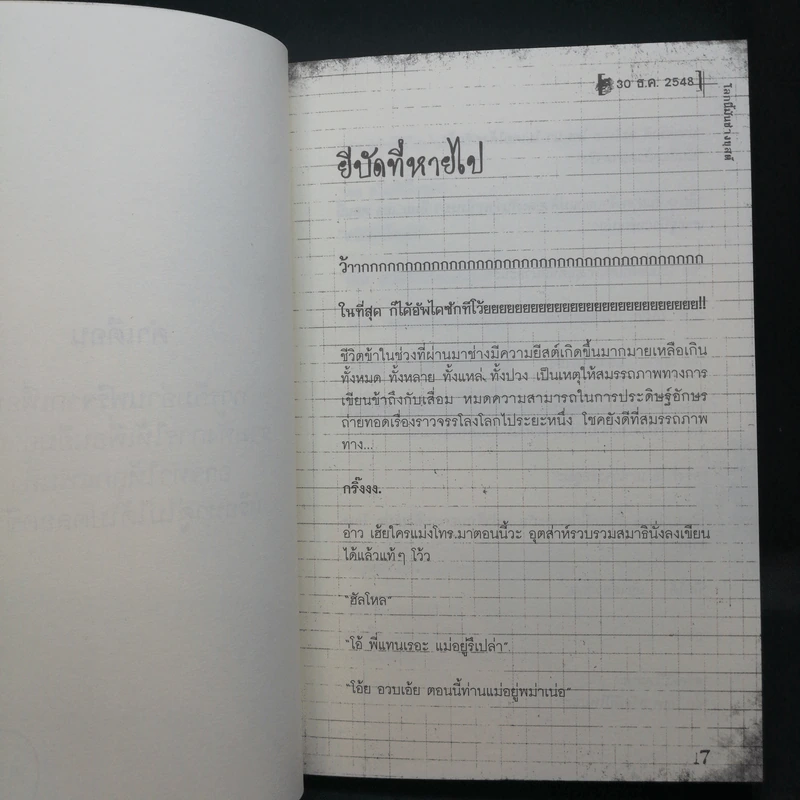 30 ธ.ค. 2548
ยีบัดที่หายไป
ว้าากกกกกกกกกกกกกกกกกกกกกกกกกกกกกกกกกกกกกกก
ในที่สุด ก็ได้อัพไดซักทีโว้ยยยยยยยยยยยยยยยยยยยยยยยยยยย!!
ชีวิตข้าในช่วงที่ผ่านมาช่างมีความยีสต์เกิดขึ้นมากมายเหลือเกิน
ทั้งหมด ทั้งหลาย ทั้งแหล่ ทั้งปวง เป็นเหตุให้สมรรถภาพทางการ
เขียนข้าถึงกับเสื่อม หมดความสามารถในการประดิษฐ์อักษร
ถ่ายทอดเรื่องราวจรรโลงโลกไประยะหนึ่ง โชคยังดีที่สมรรถภาพ
ทาง...
กริ๊งงง.
อ่าว เฮ้ยใครแม่งโทร.มาตอนนี้วะ อุตส่าห์รวบรวมสมาธินั่งลงเขียน
ได้แล้วแท้ๆ โว้ว
"ฮัลโหล"
"โอ้ พี่แทนเรอะ แม่อยู่รึเปล่า"
"โอ้ย อวบเอ้ย ตอนนี้ท่านแม่อยู่พม่าเน่อ"
17